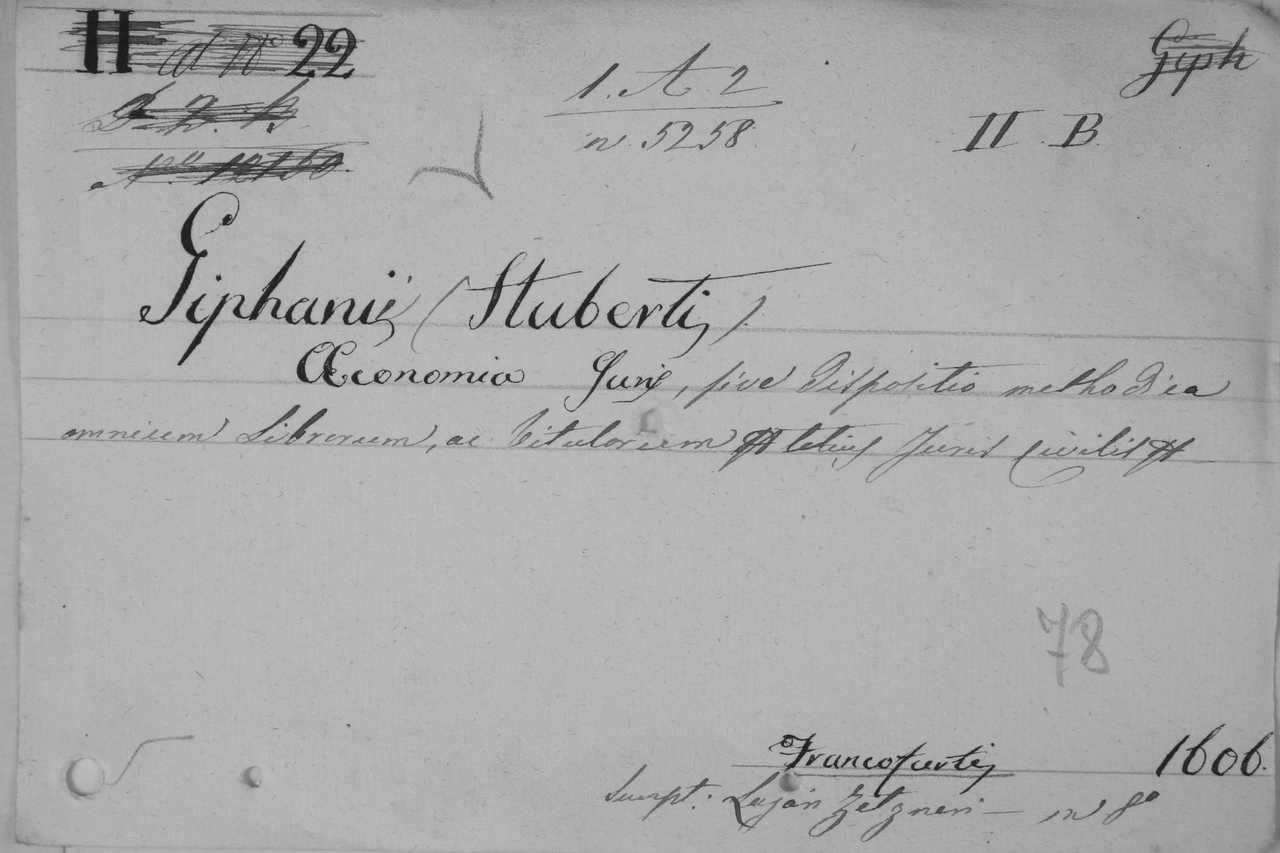 II ad No 22
Giph
1. A 2
n. 5258
II. B.
No 12150.
Giphanii (Huberti).
Œconomia Juris, sive Dispositio methodica
omnium Librorum, ac Titulorum totius Juris Civilis
78
Francofurti, 1606.
Sumpt: Lazari Zetzneri — in 8o